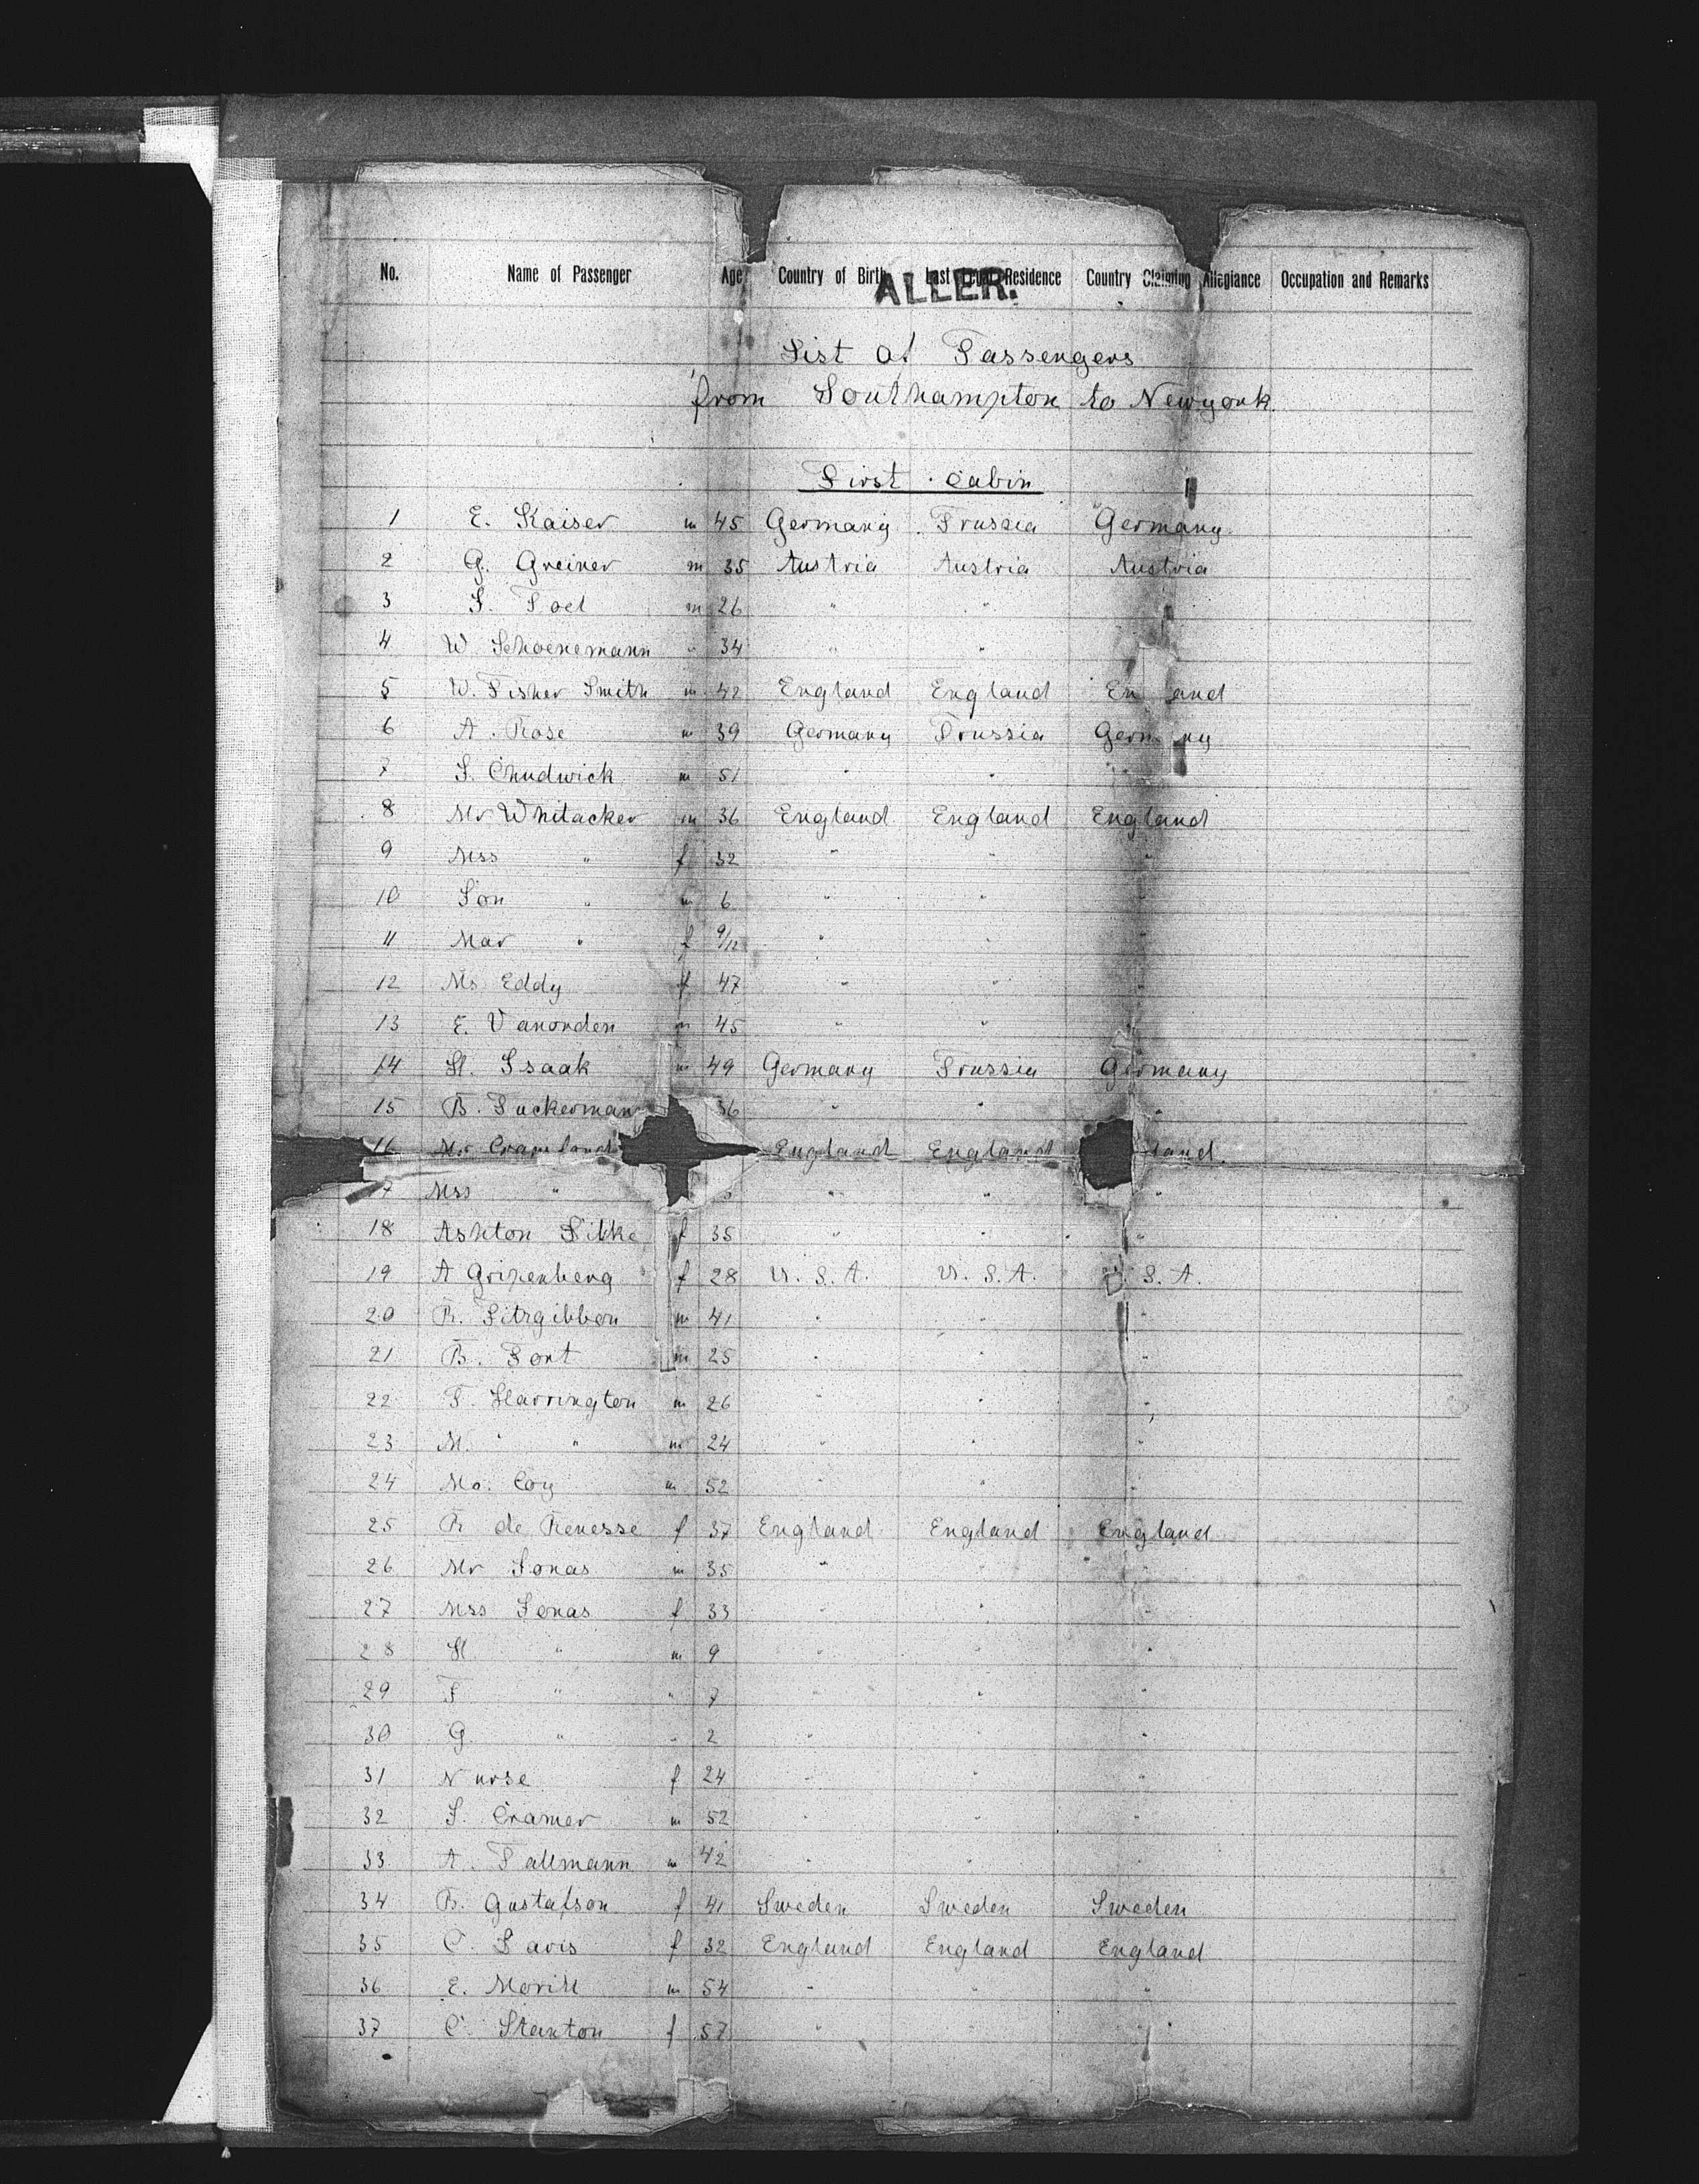 No. Name of Passenger Age Country of Birth Last Legal Residence Country Claiming Allegiance Occupation and Remarks
ALLER.
List of Passengers
from Southampton to Newyork.
First Cabin
1 E. Kaiser m 45 Germany Prussia Germany
2 G. Greiner m 35 Austria Austria Austria
3 m 26 " "
4 W. Schoenemann " 34 " "
5 W. Fisher Smith m 42 England England En and
6 A. Rose m 39 Germany Prussia Germ ny
7 Chudwick m 51 " " "
8 Mr Whitacker m 36 England England England
9 Mss " f 32 " " "
10 Son " m 6 " " "
11 Mar " f 9/12 " " "
12 Ms Eddy f 47 " " "
13 E. Vanorden m 45 " " "
14 H. Isaak m 49 Germany Prussia Germany
15 B. 36 " " "
16 Mr England England land.
7 Mss " " " "
18 Ashton f 35 " " "
19 A Gripenberg f 28 U. S. A. U. S. A. U. S. A.
20 R. Fitzgibbon m 41 " " "
21 B. m 25 " " "
22 F. Harrington m 26 " " "
23 M. " m 24 " " "
24 Coy m 52 " " "
25 R de Renesse f 37 England England England
26 Mr Jonas m 35 " " "
27 Mss Jonas f 33 " " "
28 H " m 9 " " "
29 F " " 7 " " "
30 G. " " 2 " " "
31 Nurse f 24 " " "
32 J. Cramer m 52 " " "
33 A. m 42 " " "
34 B. Gustafson f 41 Sweden Sweden Sweden
35 C. f 32 England England England
36 E. Morill m 54 " " "
37 C. Stanton f 57 " " "